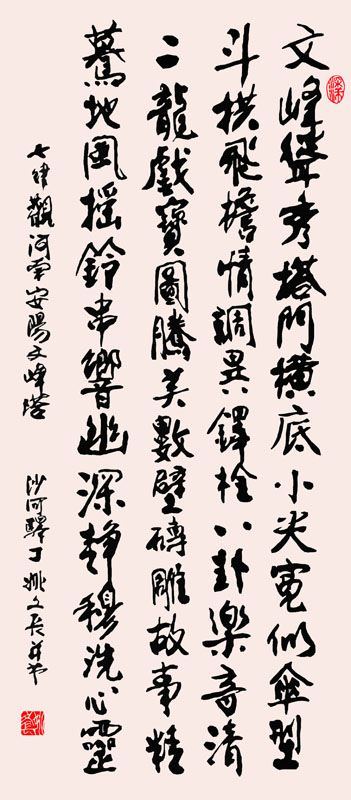 文峰聳秀塔門横底小尖寬似傘型
斗拱飛檐情調異鐸栓八卦樂音清
二龍戲寶圖騰美數壁磚雕故事精
驀地風摇鈴串響幽深静穆洗心靈
七律觀河南安陽文峰塔 沙河驛丁姚文長并书